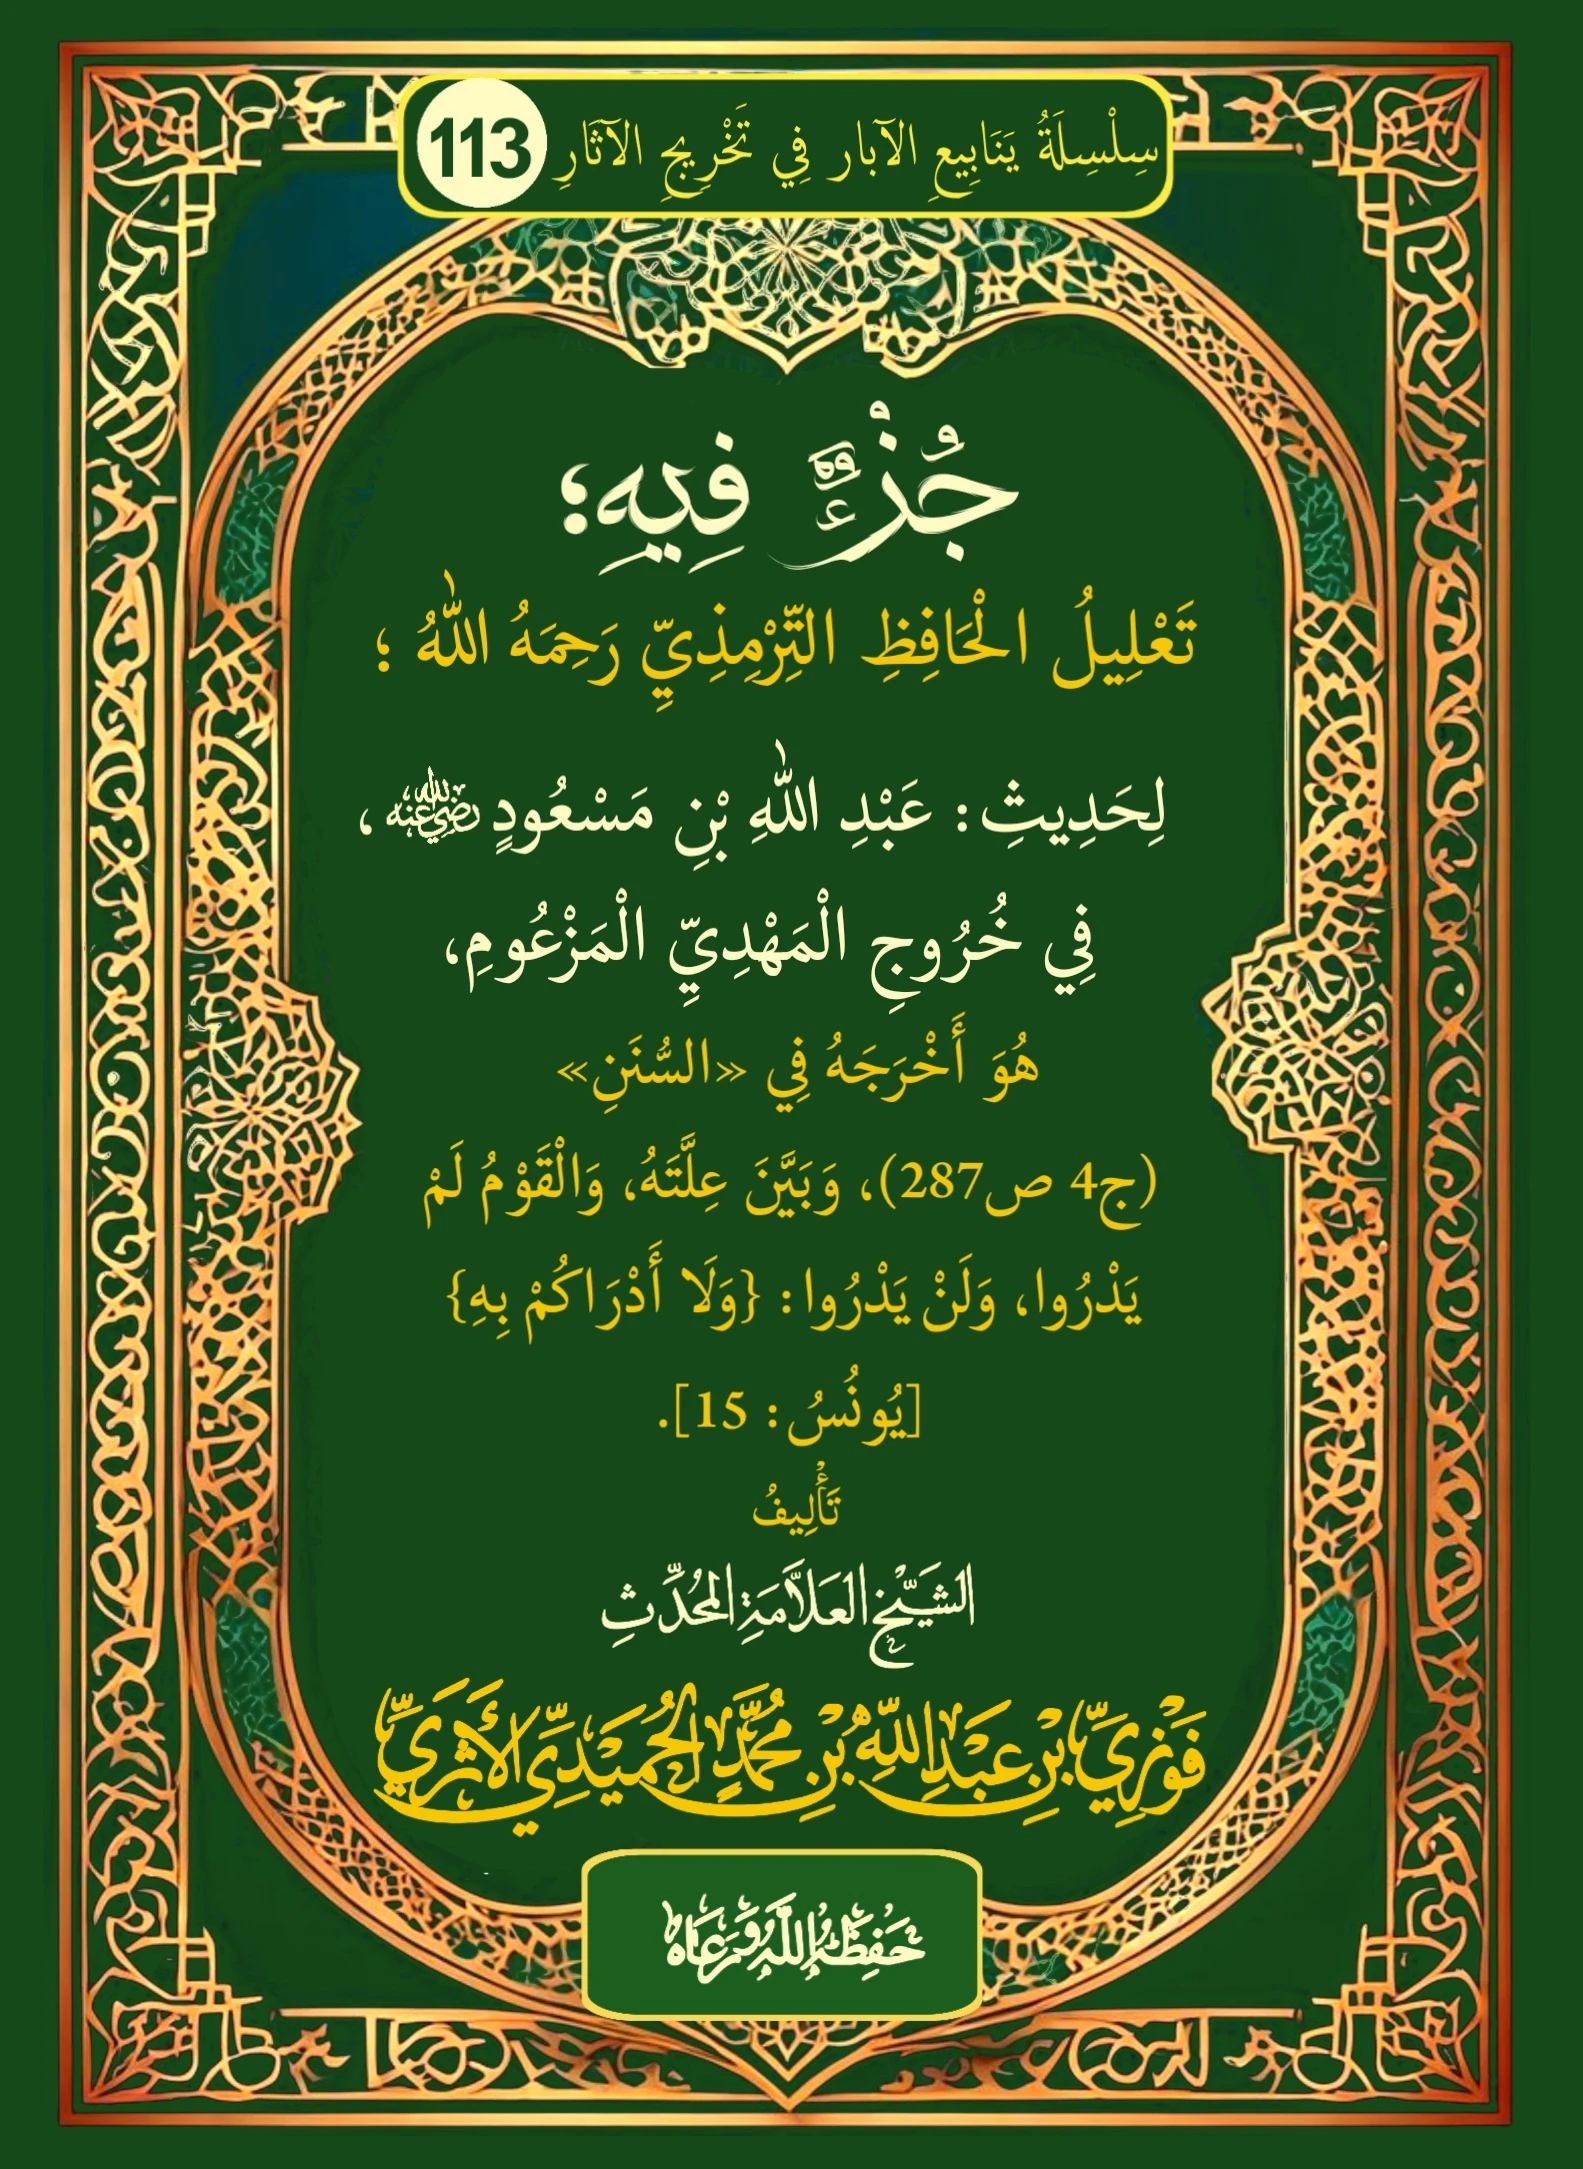 سِلْسِلَةُ يَنَابِيعِ الآبار فِي تَخْرِيجِ الآثَارِ 113
جُزْءٌ فِيهِ؛
تَعْلِيلُ الْحَافِظِ التِّرْمِذِيِّ رَحِمَهُ اللهُ ؛
لِحَدِيثِ: عَبْدِ اللهِ بْنِ مَسْعُودٍ رضي الله عنه ،
فِي خُرُوجِ الْمَهْدِيِّ الْمَزْعُومِ،
هُوَ أَخْرَجَهُ فِي «السُّنَنِ»
(ج4 ص287)، وَبَيَّنَ عِلَّتَهُ، وَالْقَوْمُ لَمْ
يَدْرُوا، وَلَنْ يَدْرُوا: {وَلَا أَدْرَاكُمْ بِهِ}
[يُونُسُ: 15].
تَأْلِيفُ
الشَّيْخِ العَلاَّمَةِ المُحَدِّثِ
فَوْزِيِّ بْنِ عَبْدِ اللَّهِ بْنِ مُحَمَّدٍ الحُمَيْدِيِّ الأَثَرِيِّ
حَفِظَهُ اللَّهُ وَرَعَاهُ